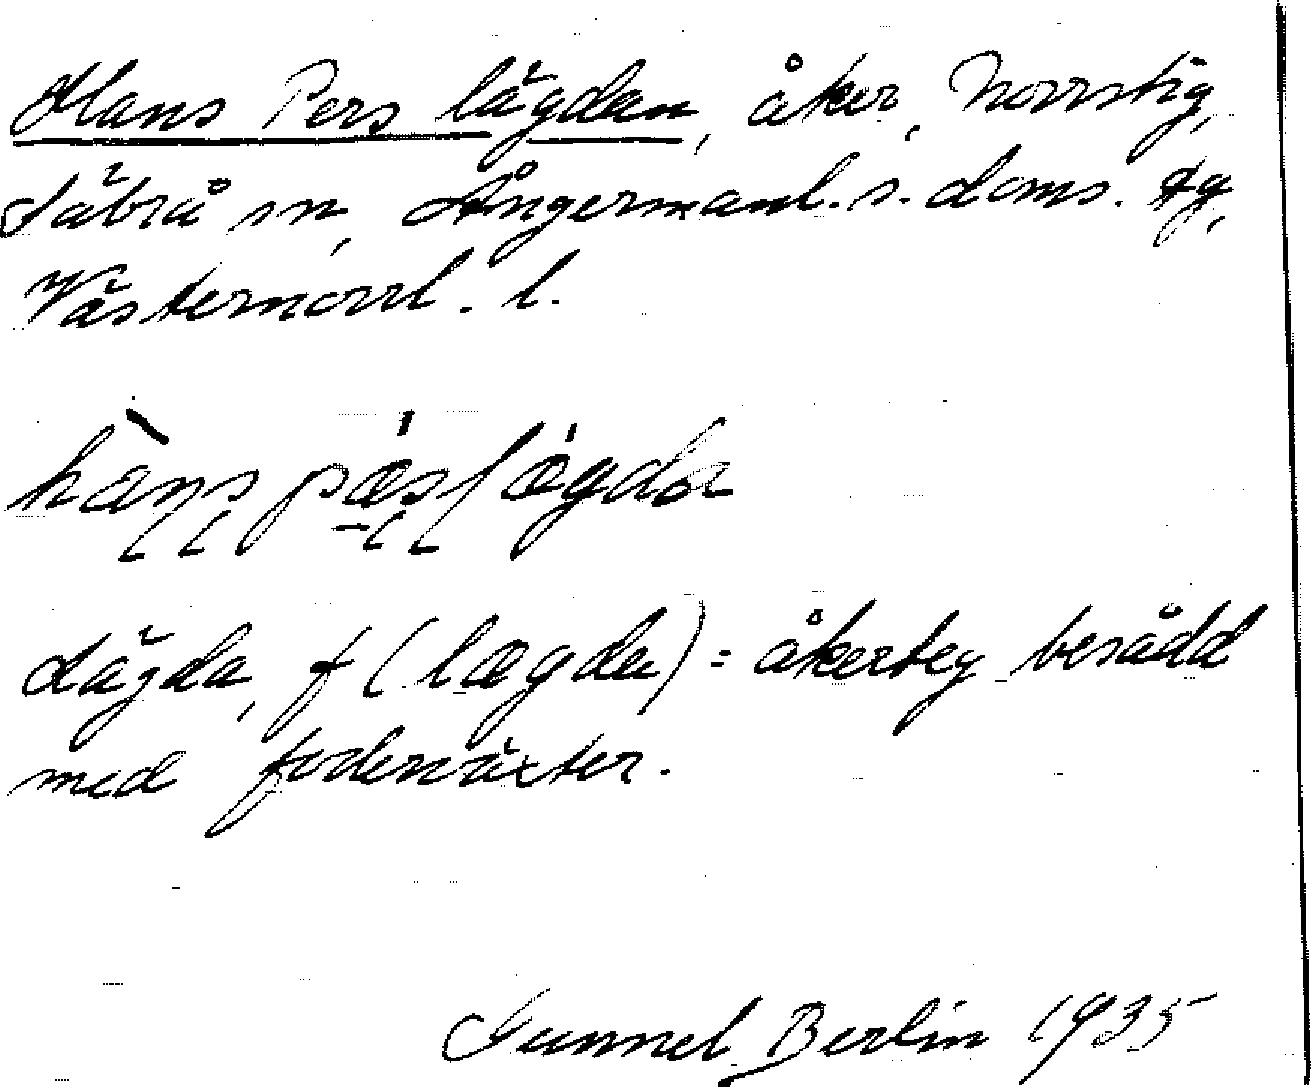 Hans Pers lägdan, åker, Norrstig,
Säbrå sn, Ångermanl. s. doms. tg,
Västernorrl. l.
hæns pæs lægda
Lägda, f (lægda) = åkerteg besådd
med foderväxter.
Gunnel Berlin 1935